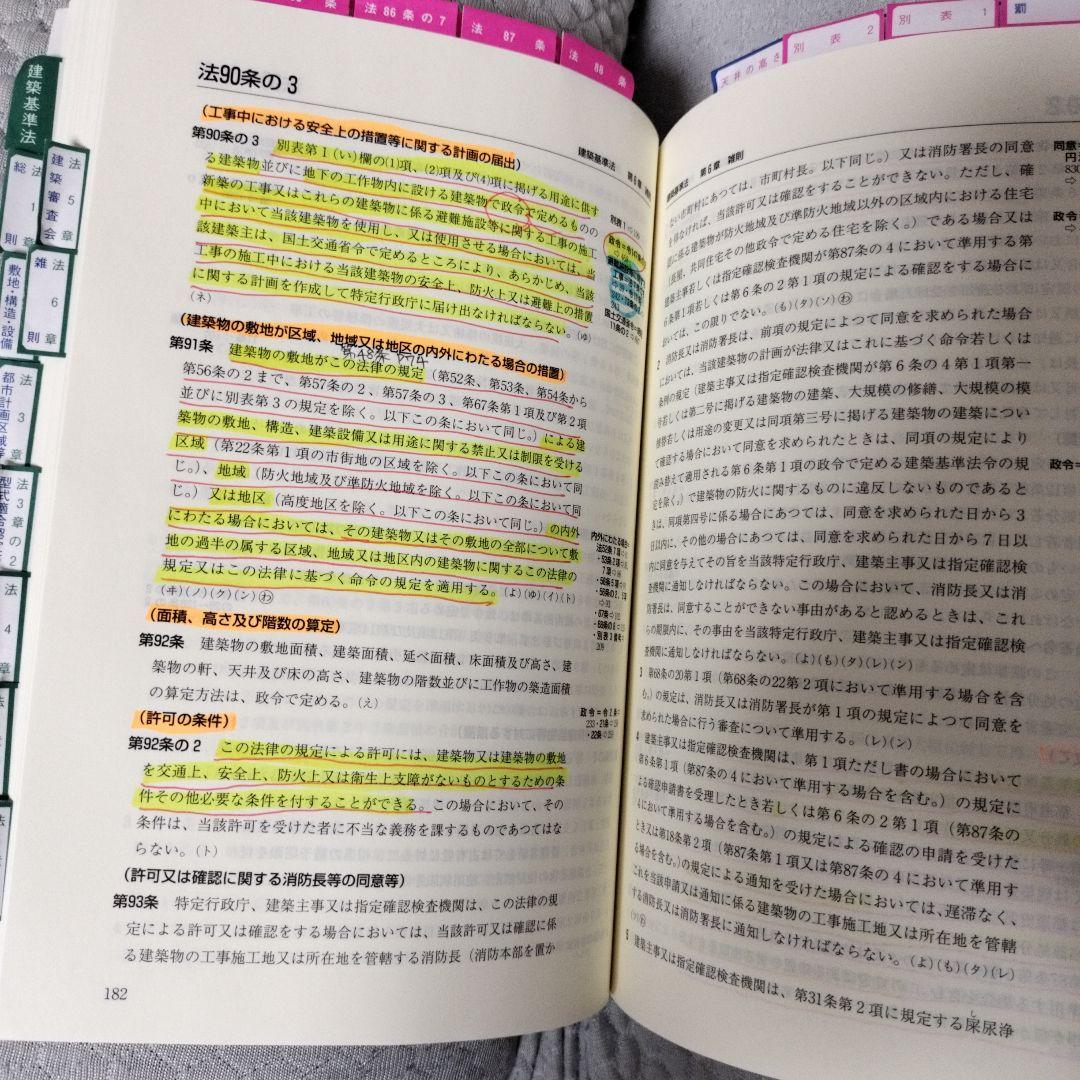 法86条の7
法 87 条
法 88 条
天井の高さ
別 表 2
別 表 1
罰
建築基準法
法
総
1
則 章
法
建築審査会
5
章
法
雑
6
則 章
敷地・構造・設備
法
3
章
都市計画区域等
法
3
章の2
型式適合認定
法
4
章
法
法90条の3
建築基準法
(工事中における安全上の措置等に関する計画の届出)
第90条の3 別表第1(い)欄の(1)項、(2)項及び(4)項に掲げる用途に供す
る建築物並びに地下の工作物内に設ける建築物で政令で定めるものの
新築の工事又はこれらの建築物に係る避難施設等に関する工事の施工
中において当該建築物を使用し、又は使用させる場合においては、当
該建築主は、国土交通省令で定めるところにより、あらかじめ、当該
工事の施工中における当該建築物の安全上、防火上又は避難上の措置
に関する計画を作成して特定行政庁に届け出なければならない。(ゆ)
(ネ)
(建築物の敷地が区域、地域又は地区の内外にわたる場合の措置)
第48条 P74
第91条 建築物の敷地がこの法律の規定(第52条、第53条、第54条から
第56条の2まで、第57条の2、第57条の3、第67条第1項及び第2項
並びに別表第3の規定を除く。以下この条において同じ。)による建
築物の敷地、構造、建築設備又は用途に関する禁止又は制限を受ける
区域(第22条第1項の市街地の区域を除く。以下この条において同
じ。)、地域(防火地域及び準防火地域を除く。以下この条において同
じ。)又は地区(高度地区を除く。以下この条において同じ。)の内外
にわたる場合においては、その建築物又はその敷地の全部について敷
地の過半の属する区域、地域又は地区内の建築物に関するこの法律の
規定又はこの法律に基づく命令の規定を適用する。(よ)(ゆ)(イ)(ト)
(ヰ)(ノ)(ク)(ン)わ
内外にわたる場合
(面積、高さ及び階数の算定)
第92条 建築物の敷地面積、建築面積、延べ面積、床面積及び高さ、建
築物の軒、天井及び床の高さ、建築物の階数並びに工作物の築造面積
の算定方法は、政令で定める。(え)
政令=令2条⇨
233・21条⇨
・22条⇨
(許可の条件)
第92条の2 この法律の規定による許可には、建築物又は建築物の敷地
を交通上、安全上、防火上又は衛生上支障がないものとするための条
件その他必要な条件を付することができる。この場合において、その
条件は、当該許可を受けた者に不当な義務を課するものであつてはな
らない。(ト)
(許可又は確認に関する消防長等の同意等)
第93条 特定行政庁、建築主事又は指定確認検査機関は、この法律の規
定による許可又は確認をする場合においては、当該許可又は確認に係
る建築物の工事施工地又は所在地を管轄する消防長(消防本部を置か
182
建築基準法 第6章 雑則
ない市町村にあつては、市町村長。以下同じ。)又は消防署長の同意
を得なければ、当該許可又は確認をすることができない。ただし、確
認に係る建築物が防火地域及び準防火地域以外の区域内における住宅
(長屋、共同住宅その他政令で定める住宅を除く。)である場合又は
建築主事若しくは指定確認検査機関が第87条の4において準用する第
6条第1項若しくは第6条の2第1項の規定による確認をする場合に
おいては、この限りでない。(も)(タ)(ソ)わ
2 消防長又は消防署長は、前項の規定によつて同意を求められた場合
においては、当該建築物の計画が法律又はこれに基づく命令若しくは
条例の規定(建築主事又は指定確認検査機関が第6条の4第1項第一
号若しくは第二号に掲げる建築物の建築、大規模の修繕、大規模の模
様替若しくは用途の変更又は同項第三号に掲げる建築物の建築につい
て確認する場合において同意を求められたときは、同項の規定により
読み替えて適用される第6条第1項の政令で定める建築基準法令の規
定を除く。)で建築物の防火に関するものに違反しないものであると
きは、同項第四号に係る場合にあつては、同意を求められた日から3
日以内に、その他の場合にあつては、同意を求められた日から7日以
内に同意を与えてその旨を当該特定行政庁、建築主事又は指定確認検
査機関に通知しなければならない。この場合において、消防長又は消
防署長は、同意することができない事由があると認めるときは、これ
らの期限内に、その事由を当該特定行政庁、建築主事又は指定確認検
査機関に通知しなければならない。(よ)(も)(タ)(レ)(ン)
3 第68条の20第1項(第68条の22第2項において準用する場合を含
む。)の規定は、消防長又は消防署長が第1項の規定によつて同意を
求められた場合に行う審査について準用する。(レ)(ン)
4 建築主事又は指定確認検査機関は、第1項ただし書の場合において
第6条第1項(第87条の4において準用する場合を含む。)の規定に
よる確認申請書を受理したとき若しくは第6条の2第1項(第87条の
4において準用する場合を含む。)の規定による確認の申請を受けた
とき又は第18条第2項(第87条第1項又は第87条の4において準用す
る場合を含む。)の規定による通知を受けた場合においては、遅滞なく、
これを当該申請又は通知に係る建築物の工事施工地又は所在地を管轄
する消防長又は消防署長に通知しなければならない。(よ)(も)(タ)(レ)
5 建築主事又は指定確認検査機関は、第31条第2項に規定する屎尿浄
し